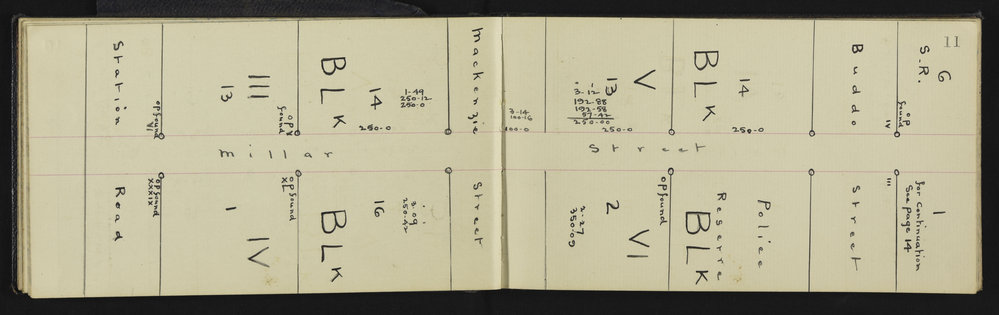 11
Station
Road
OP found
VI
OP found
XXXIX
13
III
BLK
OP V
found
14
1-49
250-12
250-0
250-0
Mackenzie
Street
Millar
Street
1
IV
BLK
OP found
XL
16
3.09
250-42
3-14
100-16
100-0
13
V
BLK
3-12
192-88
192-58
57-42
250-00
250-0
14
250-0
Buddo
Street
S.R.
G
OP
found
IV
III
1
for continuation
see page 14
2
VI
BLK
2-27
350-09
OP found
Police
Reserve